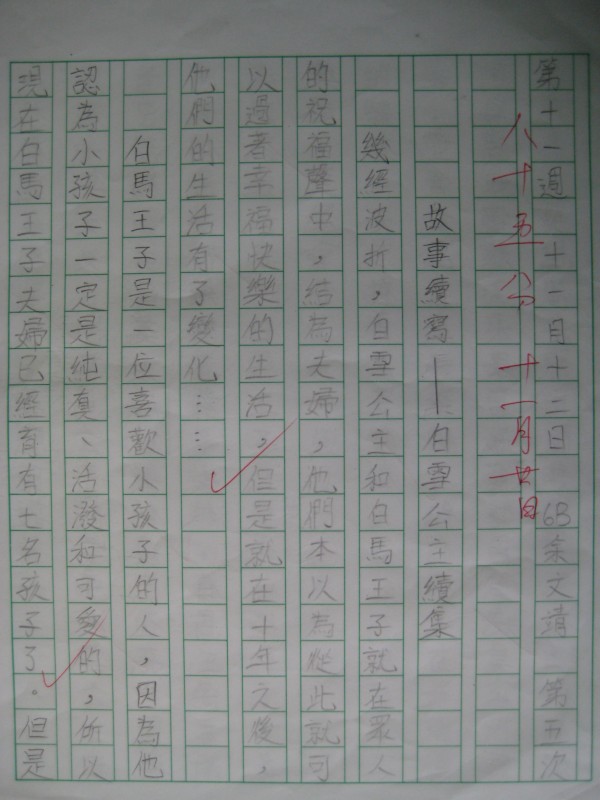 第十一週 十一月十二日 6B余文靖 第五次
八十五分 十一月廿日
故事續寫——白雪公主續集
幾經波折，白雪公主和白馬王子就在眾人
的祝福聲中，結為夫婦，他們本以為從此就可
以過著幸福快樂的生活，但是就在十年之後，
他們的生活有了變化……
白馬王子是一位喜歡小孩子的人，因為他
認為小孩子一定是純真、活潑和可愛的，所以
現在白馬王子夫婦已經育有七名孩子了。但是